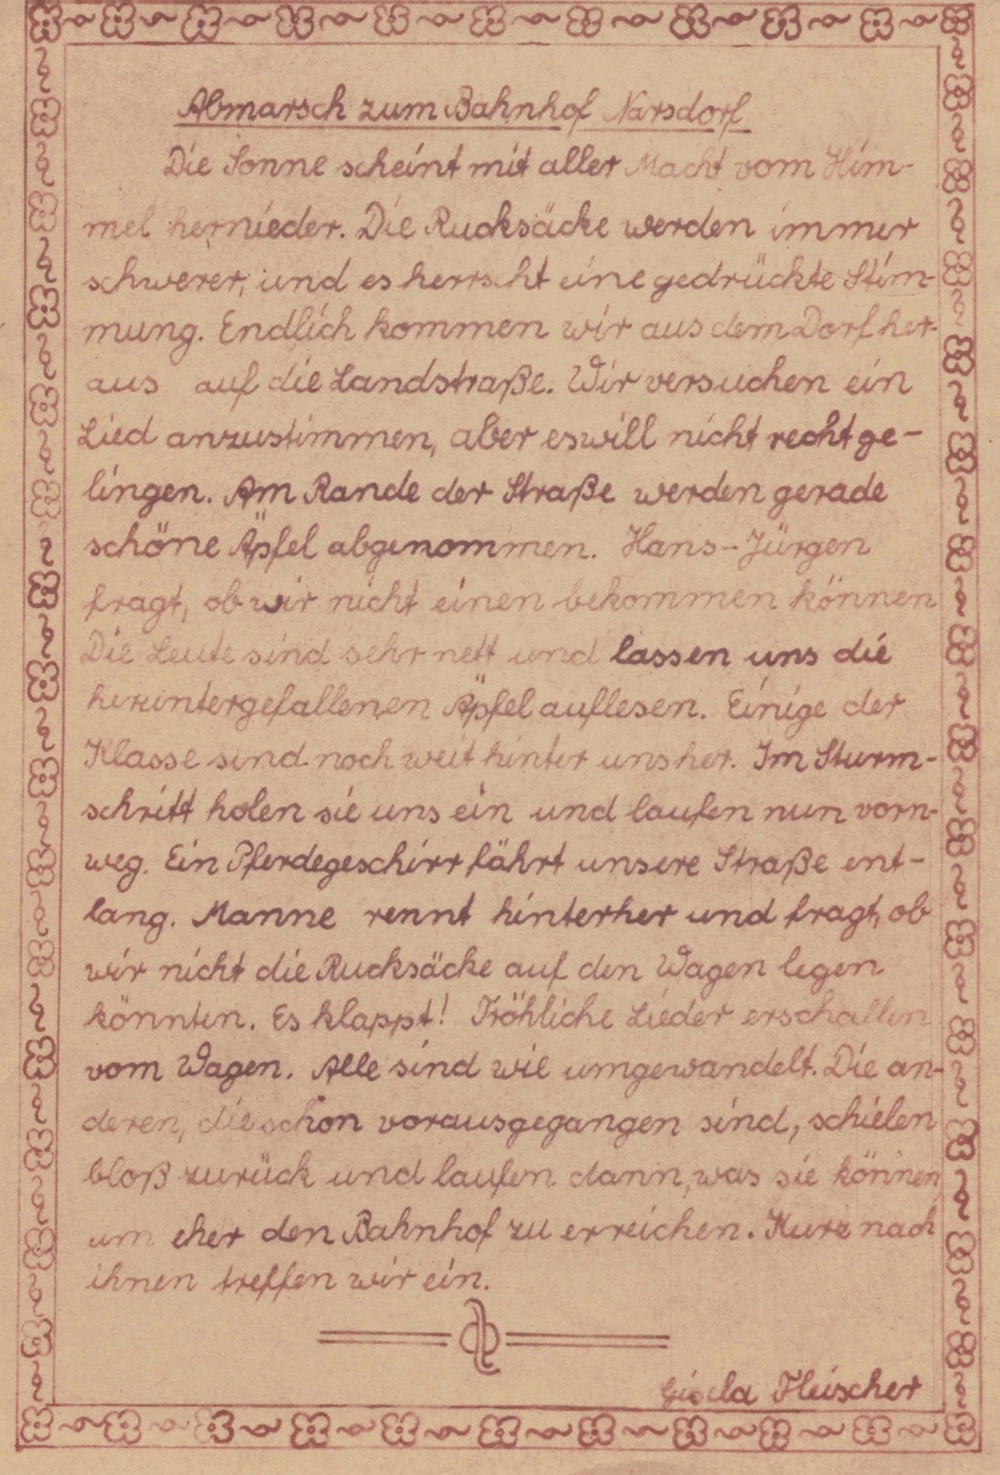 Abmarsch zum Bahnhof Narsdorf
Die Sonne scheint mit aller Macht vom Him-
mel hernieder. Die Rucksäcke werden immer
schwerer, und es herrscht eine gedrückte Stim-
mung. Endlich kommen wir aus dem Dorf her-
aus auf die Landstraße. Wir versuchen ein
Lied anzustimmen, aber es will nicht recht ge-
lingen. Am Rande der Straße werden gerade
schöne Äpfel abgenommen. Hans-Jürgen
fragt, ob wir nicht einen bekommen können
Die Leute sind sehr nett und lassen uns die
heruntergefallenen Äpfel auflesen. Einige der
Klasse sind noch weit hinter uns her. Im Sturm-
schritt holen sie uns ein und laufen nun vorn-
weg. Ein Pferdegeschirr fährt unsere Straße ent-
lang. Manne rennt hinterher und fragt, ob
wir nicht die Rucksäcke auf den Wagen legen
könnten. Es klappt! Fröhliche Lieder erschallen
vom Wagen. Alle sind wie umgewandelt. Die an-
deren, die schon vorausgegangen sind, schielen
bloß zurück und laufen dann, was sie können
um eher den Bahnhof zu erreichen. Kurz nach
ihnen treffen wir ein.
Gisela Fleischer